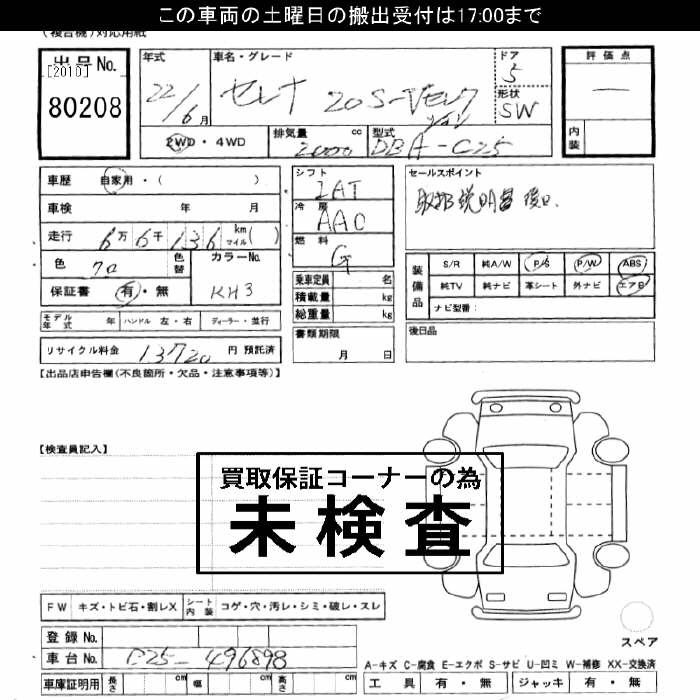 この車両の土曜日の搬出受付は17:00まで
(複合機)対応用紙
出品No.
[2010]
80208
年式
22/6月
車名・グレード
セレナ 20S-
ドア
5
形状
SW
評価点
内装
2WD・4WD
排気量 cc
2000
型式
DBA-C25
車歴 自家用・( )
車検 年 月
走行 6万6千136 km マイル( )
色
色替
カラーNo.
KH3
保証書 有・無
モデル年式 年 ハンドル 左・右 ディーラー・並行
リサイクル料金 13720 円 預託済
シフト
IAT
冷房
AAC
燃料
G
乗車定員 名
積載量 kg
総重量 kg
書類期限
月 日
セールスポイント
取扱説明書後日.
装備品
S/R 純A/W P/S P/W ABS
純TV 純ナビ 革シート 外ナビ エアB
ナビ型番:
後日品
【出品店申告欄(不良箇所・欠品・注意事項等)】
【検査員記入】
買取保証コーナーの為
未検査
FW キズ・トビ石・割レX シート内装 コゲ・穴・汚レ・シミ・破レ・スレ
登録No.
車台No. C25-496898
車庫証明用 長さ cm 幅 cm 高さ cm
スペア
A-キズ C-腐食 E-エクボ S-サビ U-凹ミ W-補修 XX-交換済
工具 有・無 ジャッキ 有・無